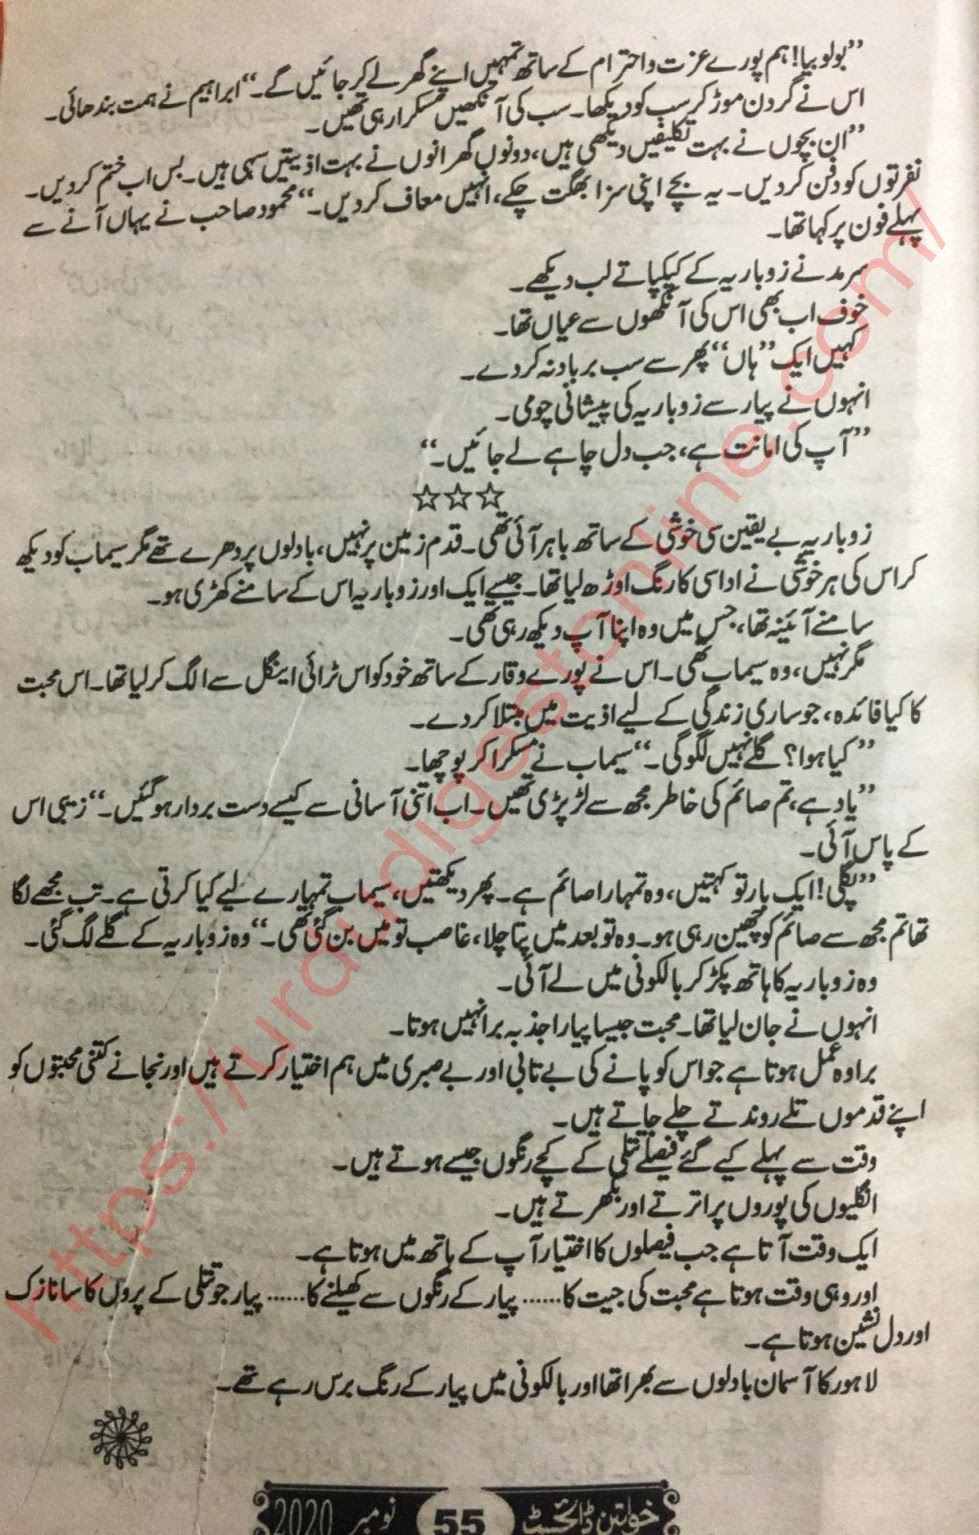 ”بولو بیا! ہم پورے عزت و احترام کے ساتھ تمہیں اپنے گھر لے کر جائیں گے۔“ ابراہیم نے ہمت بندھائی۔
اس نے گردن موڑ کر سب کو دیکھا۔ سب کی آنکھیں مسکرا رہی تھیں۔
”ان بچوں نے بہت تکلیفیں دیکھی ہیں، دونوں گھرانوں نے بہت اذیتیں سہی ہیں۔ بس اب ختم کر دیں۔
نفرتوں کو دفن کر دیں۔ یہ بچے اپنی سزا بھگت چکے، انہیں معاف کر دیں۔“ محمود صاحب نے یہاں آنے سے
پہلے فون پر کہا تھا۔
سرمد نے زوباریہ کے کپکپاتے لب دیکھے۔
خوف اب بھی اس کی آنکھوں سے عیاں تھا۔
کہیں ایک ”ہاں“ پھر سے سب برباد نہ کر دے۔
انہوں نے پیار سے زوباریہ کی پیشانی چومی۔
”آپ کی امانت ہے، جب دل چاہے لے جائیں۔“
☆☆☆
زوباریہ بے یقین سی خوشی کے ساتھ باہر آئی تھی۔ قدم زمین پر نہیں، بادلوں پر دھرے تھے مگر سیماب کو دیکھ
کر اس کی ہر خوشی نے اداسی کا رنگ اوڑھ لیا تھا۔ جیسے ایک اور زوباریہ اس کے سامنے کھڑی ہو۔
سامنے آئینہ تھا، جس میں وہ اپنا آپ دیکھ رہی تھی۔
مگر نہیں، وہ سیماب تھی۔ اس نے پورے وقار کے ساتھ خود کو اس ٹرائی اینگل سے الگ کر لیا تھا۔ اس محبت
کا کیا فائدہ، جو ساری زندگی کے لیے اذیت میں مبتلا کر دے۔
”کیا ہوا؟ گلے نہیں لگو گی۔“ سیماب نے مسکرا کر پوچھا۔
”یاد ہے، تم صائم کی خاطر مجھ سے لڑ پڑی تھیں۔ اب اتنی آسانی سے کیسے دست بردار ہو گئیں۔“ زیبی اس
کے پاس آئی۔
”پگلی! ایک بار تو کہتیں، وہ تمہارا صائم ہے۔ پھر دیکھتیں، سیماب تمہارے لیے کیا کرتی ہے۔ تب مجھے لگا
تھا تم مجھ سے صائم کو چھین رہی ہو۔ وہ تو بعد میں پتا چلا، غاصب تو میں بن گئی تھی۔“ وہ زوباریہ کے گلے لگ گئی۔
وہ زوباریہ کا ہاتھ پکڑ کر بالکونی میں لے آئی۔
انہوں نے جان لیا تھا۔ محبت جیسا پیارا جذبہ برا نہیں ہوتا۔
برا وہ عمل ہوتا ہے جو اس کو پانے کی بے تابی اور بے صبری میں ہم اختیار کرتے ہیں اور نجانے کتنی محبتوں کو
اپنے قدموں تلے روندتے چلے جاتے ہیں۔
وقت سے پہلے کیے گئے فیصلے تتلی کے کچے رنگوں جیسے ہوتے ہیں۔
انگلیوں کی پوروں پر اترتے اور بکھرتے ہیں۔
ایک وقت آتا ہے جب فیصلوں کا اختیار آپ کے ہاتھ میں ہوتا ہے۔
اور وہی وقت ہوتا ہے محبت کی جیت کا...... پیار کے رنگوں سے کھیلنے کا...... پیار جو تتلی کے پروں کا سا نازک
اور دل نشین ہوتا ہے۔
لاہور کا آسمان بادلوں سے بھرا تھا اور بالکونی میں پیار کے رنگ برس رہے تھے۔
خواتین ڈائجسٹ 55 نومبر 2020
https://urdudigestonline.com/